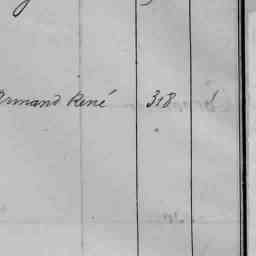 Armand René 318 1